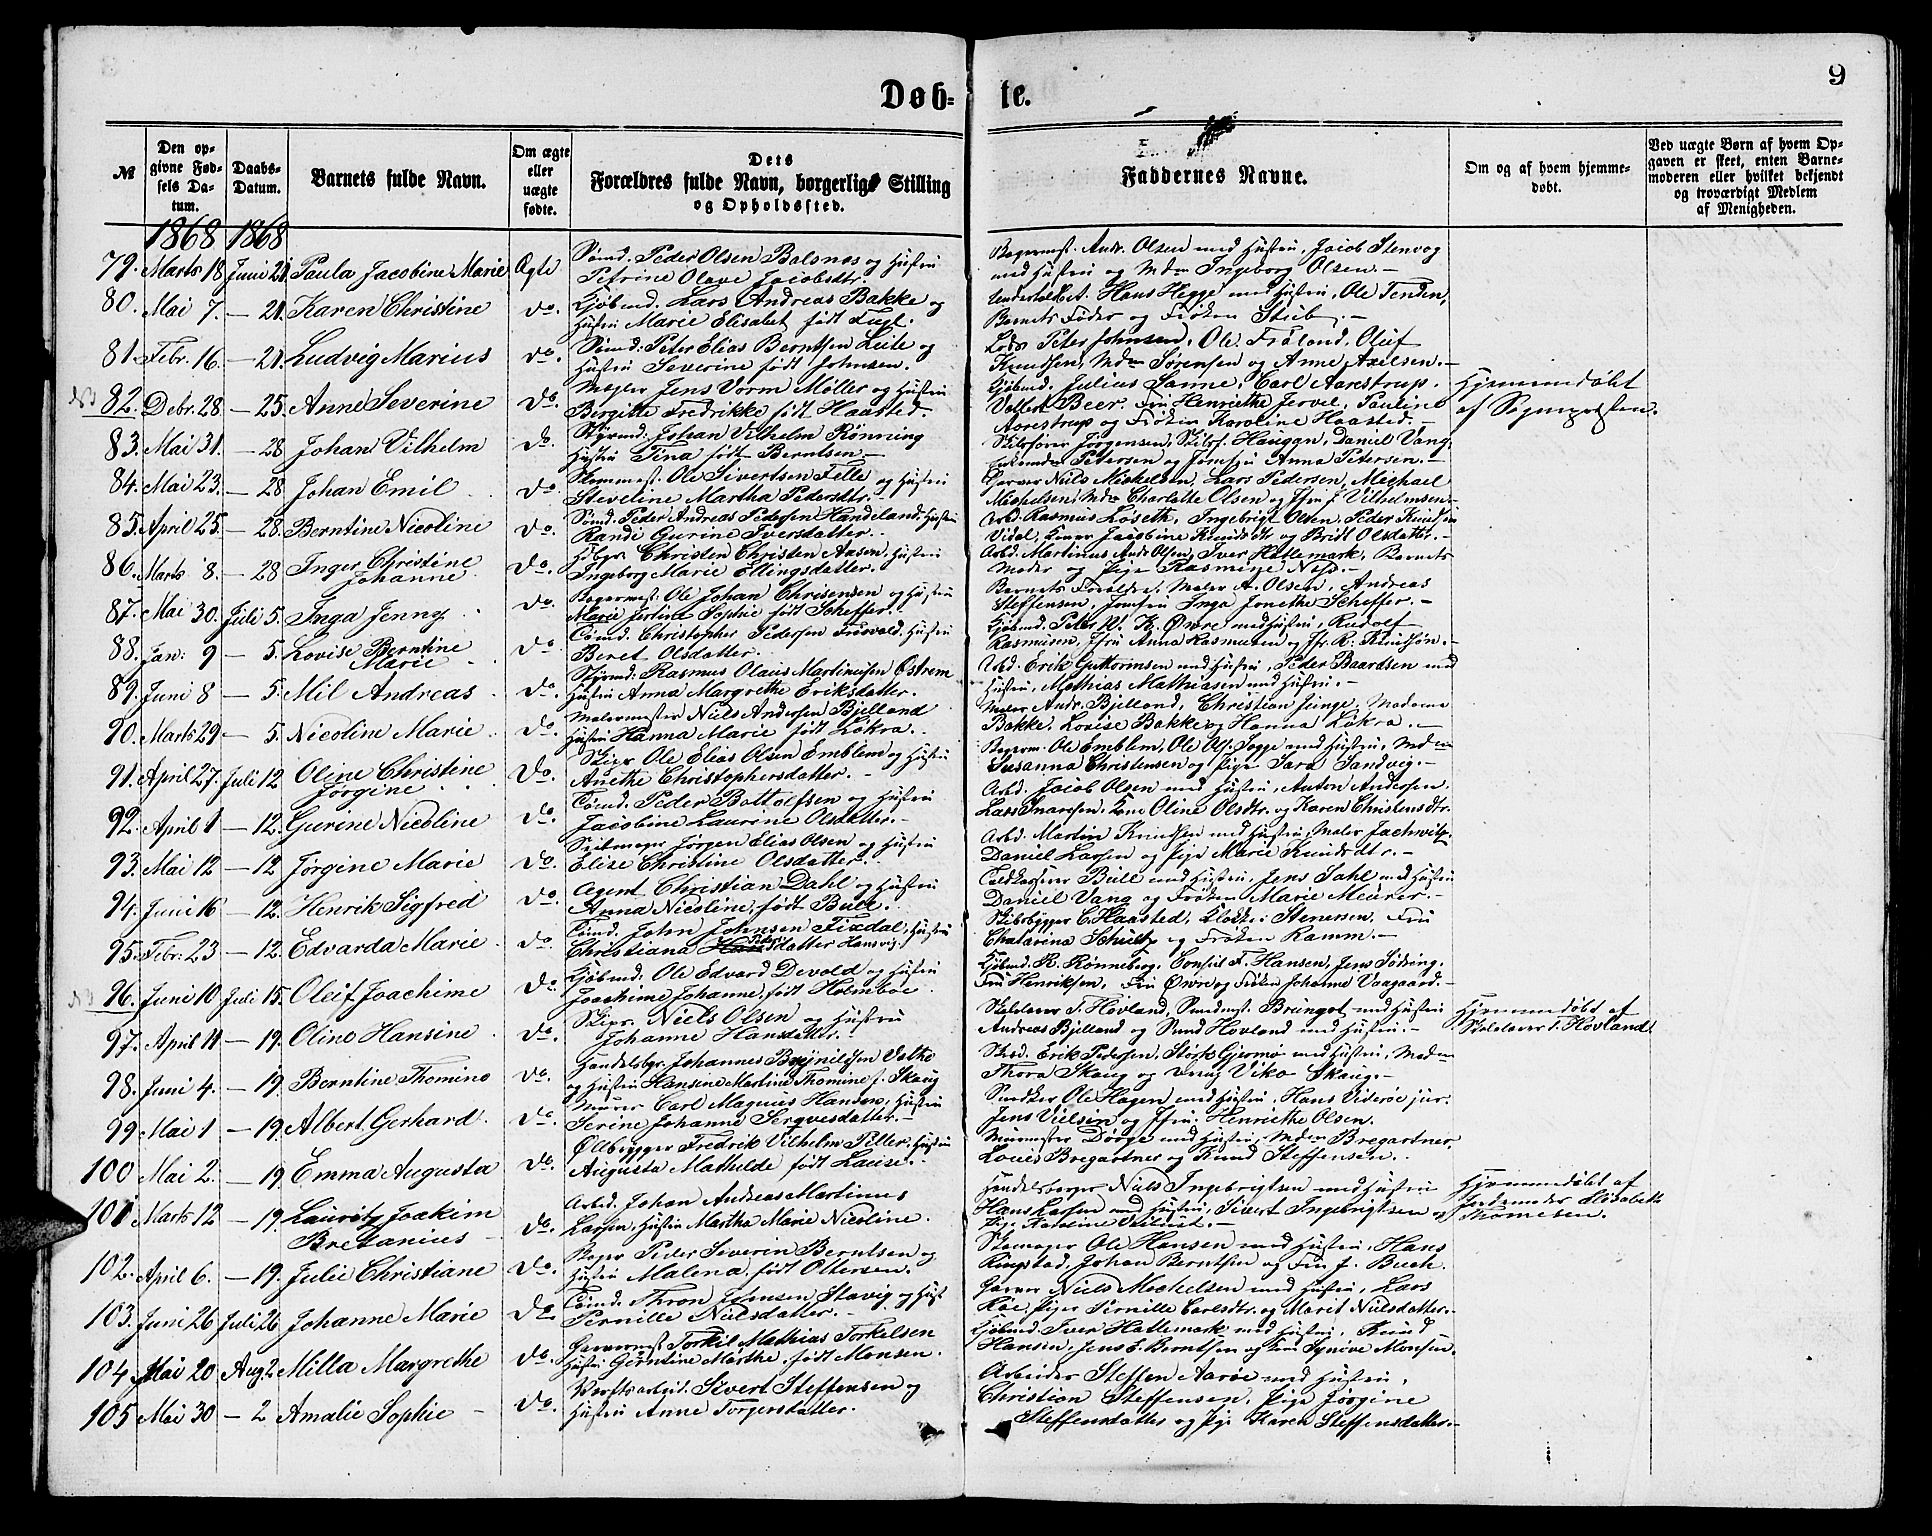 Døb=
te.
9
№
Den opgivne Fødsels Datum.
Daabs-Datum.
Barnets fulde Navn.
Om ægte eller uægte fødte.
Dets Forældres fulde Navn, borgerlige Stilling og Opholdssted.
Faddernes Navne.
Om og af hvem hjemmedøbt.
Ved uægte Børn af hvem Opgaven er skeet, enten Barnemoderen eller hvilket bekjendt og troværdigt Medlem af Menigheden.
1868 1868
79. Marts 18 Juni 21 Paula Jacobine Marie Ægte
Sømd. Peder Olsen Balsnes og Hustru
Petrine Olave Jacobsdtr.
Bagermst. Andr. Olsen med Hustru, Jacob Stenvag
med Hustru og Mdm Ingeborg Olsen.
80. Mai 7. — 21. Karen Christine do.
Kjøbmd. Lars Andreas Bakke og
Hustru Marie Elisabet født Fugl.
Hans Hegge med Hustru, Ole Tenden,
Barnets Fader og Frøken Stub.
81. Febr. 16. — 21. Ludvig Marius do.
Sømd. Peter Elias Berntsen Leite og
Hustru Severine født Johnsen.
Lods Peter Johnsen, Ole Frøland, Oluf
Knudsen, Mdm Sørensen og Anne Axelsen.
82. Debr. 28. — 25. Anne Severine do.
Mægler Jens Vorm Møller og Hustru
Bergitte Fredrikke født Haasted.
Kjøbmd. Julius Sanne, Carl Aarestrup.
Beer. Fru Henriethe Jervel, Pauline
Aarestrup og Frøken Karoline Haasted.
Hjemmedøbt
af Sognepresten.
83. Mai 31. — 28 Johan Vilhelm do.
Styrmd. Johan Vilhelm Rønning
Hustru Tina født Berntsen.
Skibsfører Jørgensen, Skibsf. Hauggn, Daniel Vang,
Petersen og Jomfru Anna Petersen.
84. Mai 23. — 28 Johan Emil do.
Ole Sivertsen Felle og Hustru
Steveline Martha Pedersdtr.
Garver Niels Mickelsen, Lars Pedersen, Michael
Mickelsen, Mdm Charlotte Olsen og Jfru J. Vilhelmsen.
85. April 25. — 28. Berntine Nicoline do.
Sømd. Peder Andreas Pedersen Handeland, Hustru
Rande Gurine Iversdatter.
Arbd. Rasmus Løseth, Ingebrigt Olsen, Peder Knudsen
Vidal, Jacobine Knudsdtr og Bridt Olsdatter.
86. Marts 8. — 28 Inger Christine
Johanne do.
Christen Christen Aasen, Hustru
Ingeborg Marie Ellingsdatter.
Arbd. Martinus Andr Olsen, Iver Hattemark, Barnets
Moder og Pige Rasmine
87. Mai 30. Juli 5. Inga Jenny do.
Bagermest. Ole Johan Christensen og Hustru
Marie Jertina Sophie født Scheffer.
Barnets Forældre, Maler A. Olsen, Andreas
Steffensen, Jomfru Inga Jonethe Scheffer.
88. Jan: 9 — 5. Lovise Berntine
Marie do
Sømd. Christopher Pedersen Hustru
Beret Olsdatter.
Kjøbmd. Peter W. K. Øwre med Hustru, Rudolf
Rasmusen, Jfru Anna Rasmusen og Jfr. R. Knudsøn.
89. Juni 8 — 5. Mil Andreas do.
Styrmd. Rasmus Olaus Martinusen Østrem
Hustru Anna Margrethe Eriksdatter.
Arbd. Erik Guttormsen med Hustru, Peder Baardsen med
Hustru, Mathias Mathiasen med Hustru.
90. Marts 29 — 5. Nicoline Marie do.
Malermester Niels Andersen Bjelland
Hustru Hanna Marie født Løkra.
Maler Andr. Bjelland, Christian Junge, Madame
Bakke, Lovise Bakke og Hanna Løkra.
91. April 27. Juli 12. Oline Christine
Jørgine do.
Skipr. Ole Elias Olsen Emblem og Hustru
Anethe Christophersdatter.
Bagerm. Ole Emblem, Ole Jogge med Hustru, Mdm
Susanna Christensen og Pige Sara Sandvig.
92. April 1 — 12. Gurine Nicoline do.
Tømd. Peder Bottolfsen og Hustru
Jacobine Laurine Olsdatter.
Arbd. Jacob Olsen med Hustru, Anton Andersen,
Lars Ivarsen, Kone Oline Olsdtr. og Karen Christensdtr.
93. Mai 12 — 12 Jørgine Marie do
Seilmager Jørgen Elias Olsen og Hustru
Elise Christine Olsdatter.
Arbd. Martin Knudsen med Hustru, Maler Jachwitz,
Daniel Larsen og Pige Marie Knudsdtr.
94. Juni 16 — 12. Henrik Sigfred do.
Agent Christian Dahl og Hustru
Anna Nicoline, født Bull.
Toldkasserer Bull med Hustru, Jens Dahl med Hustru
Daniel Vang og Frøken Marie Meurer.
95. Febr. 23 — 12. Edvarda Marie do.
Tømd. John Johnsen Tixdal, Hustru
Christiana Pedersdatter
Skibsbygger C. Haasted, Klokker Stenersen, Fru
Chatarina Schultz og Frøken Ramm.
96. Juni 10 Juli 15. Oluf Joachime do.
Kjøbmd. Ole Edvard Devold og Hustru
Joachime Johanne, født Holmboe
Kjøbmd. R. Rønneberg, Consul F. Hansen, Jens Jødsing,
Fru Henriksen, Fru Øwre og Frøken Johanne Vaagaard.
97. April 11 — 19. Oline Hansine do.
Skipr. Niels Olsen og Hustru
Johanne Hansdatter.
Skolelærer T. Hovland, Brungot med Hustru
Andreas Bjelland og Hovland med Hustru.
Hjemmedøbt af
Skolelærer T. Hovland.
98. Juni 4. — 19. Berntine Thomine do.
Handelsbgr. Johannes Brynildsen Vathe
og Hustru Hansine Martine Thomine f. Skaug
Skbd. Erik Pedersen, Størk Gjermo med Hustru, Madm
Thora Skaug og Viko Skaug.
99 Mai 1 — 19. Albert Gerhard. do.
Murer Carl Magnus Hansen, Hustru
Serine Johanne Sergvesdatter.
Snedker Ole Hagen med Hustru, Hans Viderøe jur.
Jens Vielsen og Jfru Henriethe Olsen.
100 Mai 2. — 19. Emma Augusta do
Ølbrygger Fredrik Vilhelm Peller, Hustru
Augusta Mathilde født Lause.
Murmester Dørge med Hustru, Mdm Bregartner
Louis Bregartner og Knud Steffensen.
101 Marts 12 — 19. Lauritz Joakim
Bretanius do.
Arbd. Johan Andreas Martinus
Larsen, Hustru Martha Marie Nicoline.
Handelsborger Niels Ingebrigtsen med Hustru
Hans Larsen med Hustru, Sivert Ingebrigtsen og
Pige Karoline
Hjemmedøbt af
Jordemoder Elisabeth
Thomesen.
102. April 6. — 19. Julie Christiane do.
Bager Peder Severin Berntsen og
Hustru Malena, født Ottersen.
Skomager Ole Hansen med Hustru, Hans
Ringstad, Johan Berntsen og Fru J. Buch.
103. Juni 26 Juli 26 Johanne Marie do.
Tømd. Thron Jensen Stavig og Hust
Pernille Nielsdatter.
Garver Niels Mickelsen med Hustru, Lars
Røe, Piger Pernille Carlsdtr. og Marit Nielsdatter.
104 Mai 20 Aug 2 Milla Margrethe do.
Garvermst Torkil Mathias Torkelsen
Hustru Gerntine Marthe, født Monsen.
Kjøbmd. Iver Hattemark med Hustru, Knud
Hansen, Jens E. Berntsen og Synøve Monsen.
105 Mai 30 — 2 Amalie Sophie do.
Værftsarbeid. Sivert Steffensen og
Hustru Anne Torgersdatter.
Arbeider Steffen Aarøe med Hustru,
Christian Steffensen, Pige Jørgine
Steffensdatter og Pige Karen Steffensdatter.